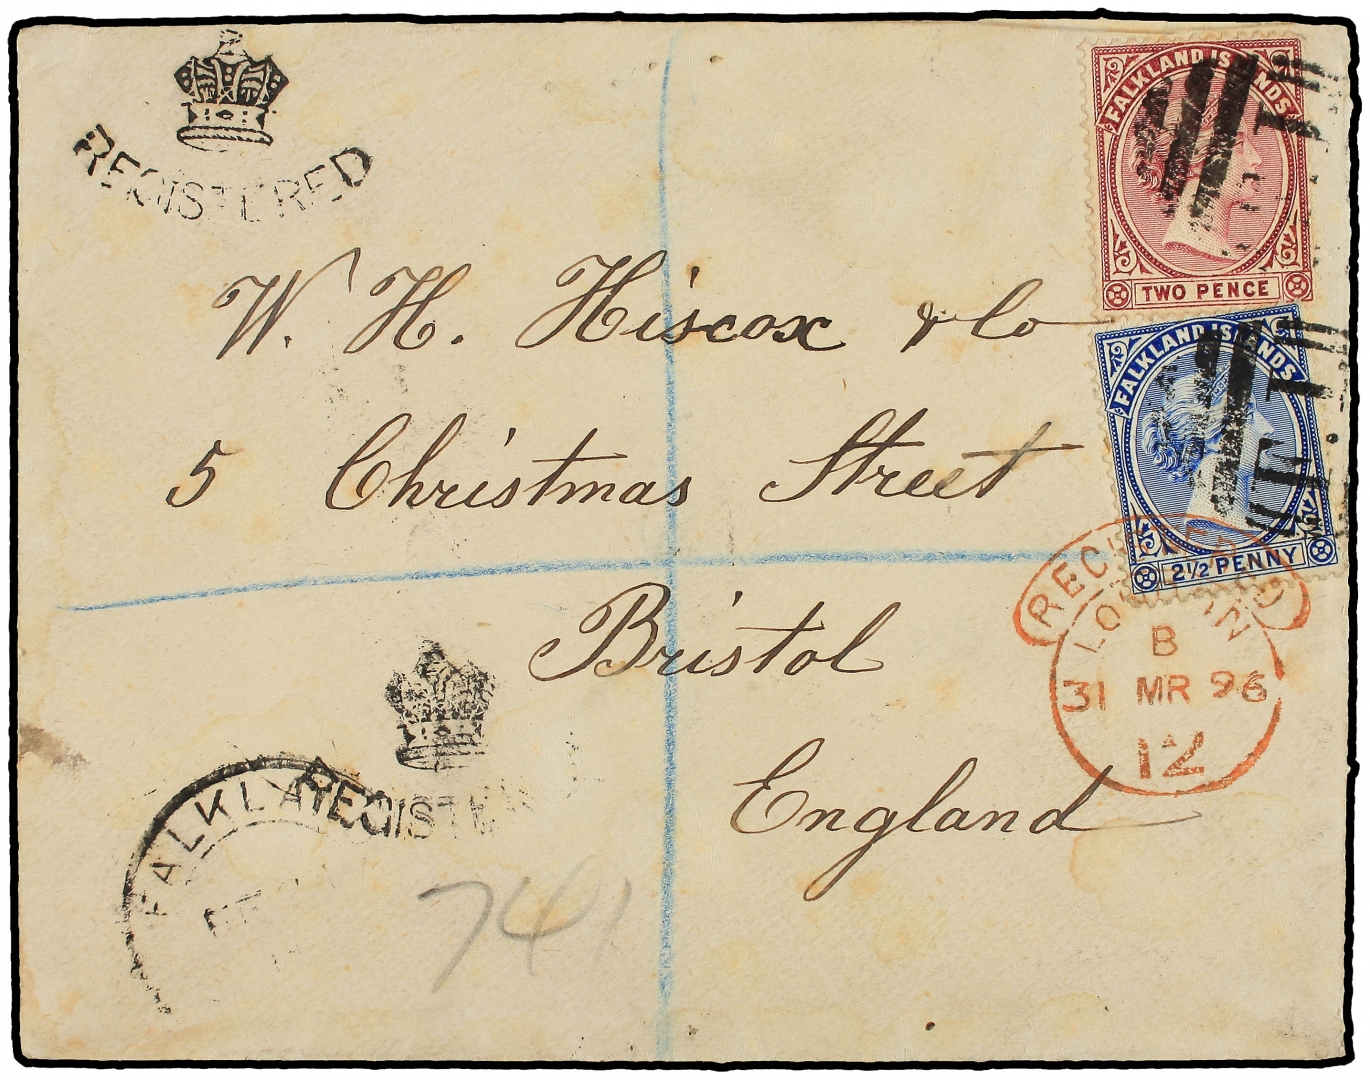 REGISTERED
FALKLAND ISLANDS
TWO PENCE
W. H. Hiscox & Co
FALKLAND ISLANDS
2½ PENNY
5 Christmas Street
REGISTERED
LONDON
B
31 MR 96
12
Bristol
England
FALKLA
REGISTE
741